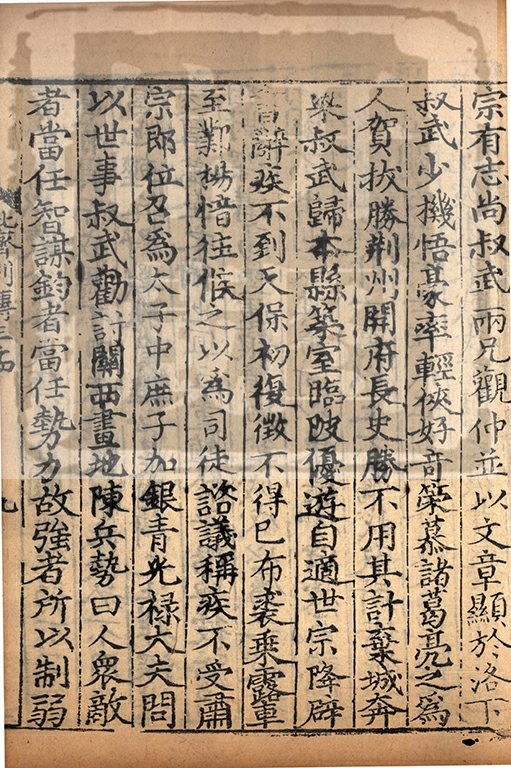 宗有志尚叔武兩兄觀仲並以文章顯於洛下
叔武少機悟豪率輕俠好奇策慕諸葛亮之爲
人賀拔勝荆州開府長史勝不用其計棄城奔
梁叔武歸本縣築室臨陂優遊自適世宗降辟
書辭疾不到天保初復徵不得已布裘乗露車
至鄴楊愔往候之以爲司徒諮議稱疾不受肅
宗即位召爲太子中庶子加銀青光禄大夫問
以世事叔武勸討關西畫地陳兵勢曰人衆敵
者當任智謀鈞者當任勢力故強者所以制弱
北齊列傳三十四
九